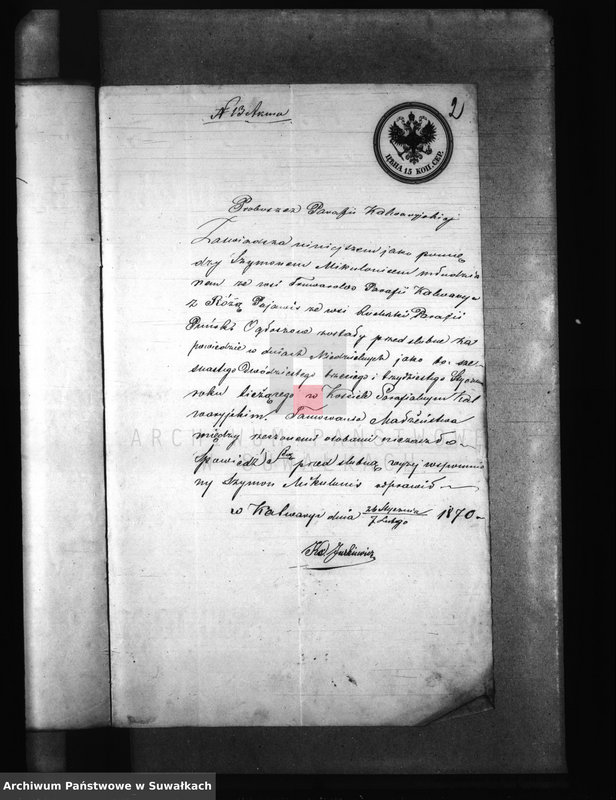 N 13 Akma
2
ЦѢНА 15 КОП. СЕР.
Proboszcz Parafii Kalwaryjskiej
Zaświadcza niniejszem jako pomię
dzy Szymonem Mikulanisem młodzia
nem ze wsi Parafii Kalwarya
z Różą Pajawis ze wsi Parafii
Puńsk Ogłoszone zostały przedślubne za
powiedzie w dniach Niedzielnych jako to: sze
snastego Dwódziestego trzeciego i trzydziestego Stycznia
roku bieżącego w Kościele Parafialnym Kal
waryjskim, Tamowania Małżeństwa
między rzeczonemi osobami niezaszło
Spowiedź zaś przedślubną wyżej wspomnio
ny Szymon Mikulanis odprawił
w Kalwaryi dnia 26 Stycznia / 7 Lutego 1870
Kś Jurkiewicz
ARCHIWUM PAŃSTWOWE
W SUWAŁKACH
Archiwum Państwowe w Suwałkach